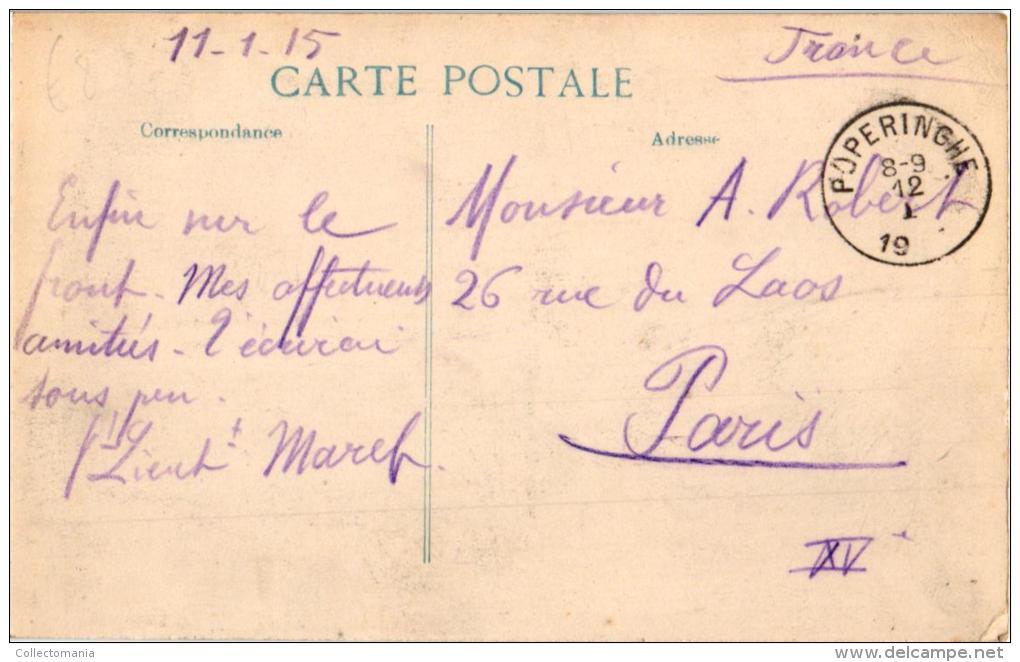 11-1-15
France
CARTE POSTALE
Correspondance
Adresse
POPERINGHE
8-9
12
1
19
Enfin sur le
front. Mes affectueuses
amitiés - J'écrirai
sous peu.
S/Lieut
Monsieur A. Robert
26 rue du Laos
Paris
XV
Collectomania
delcampe.net